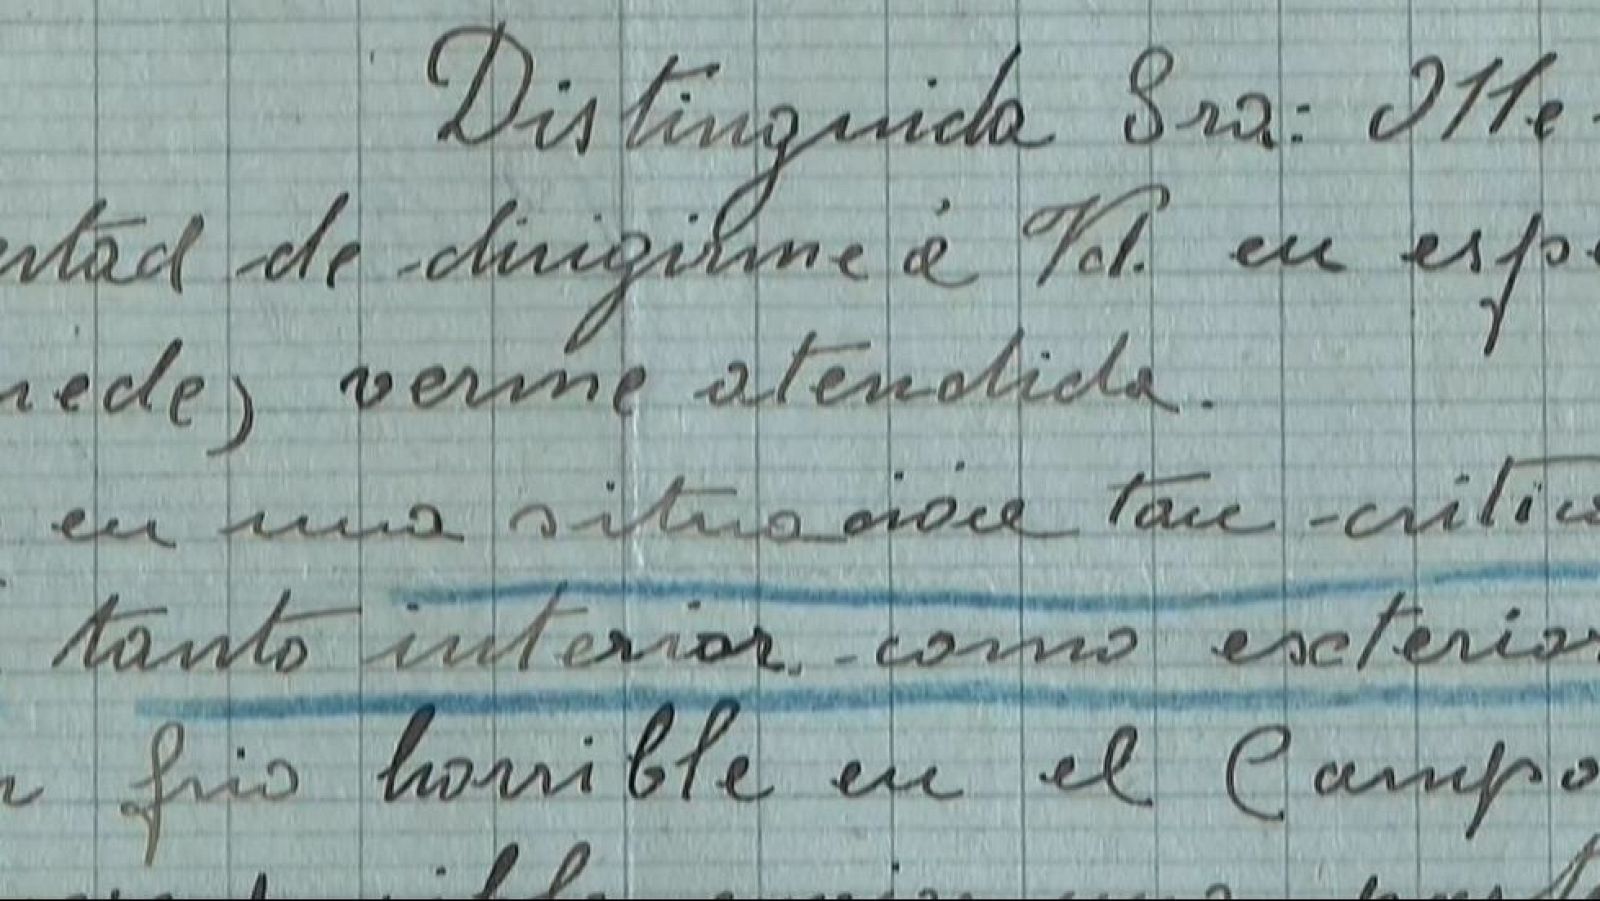 Distinguida Sra: Me
ertad de dirigirme á Vd. en espe
uede) verme atendida.
en una situación tan critica
tanto interior como exterior
n frio horrible en el Campo